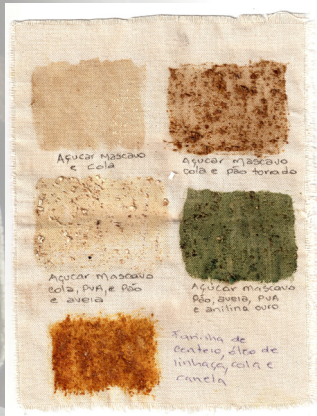 Açucar Mascavo
e Cola
Açucar mascavo
cola e pão torrado
Açucar Mascavo
cola, PVA, e Pão
e aveia
Açucar mascavo
Pão, aveia, PVA
e anilina ouro
Farinha de
centeio, óleo de
linhaça, cola e
canela